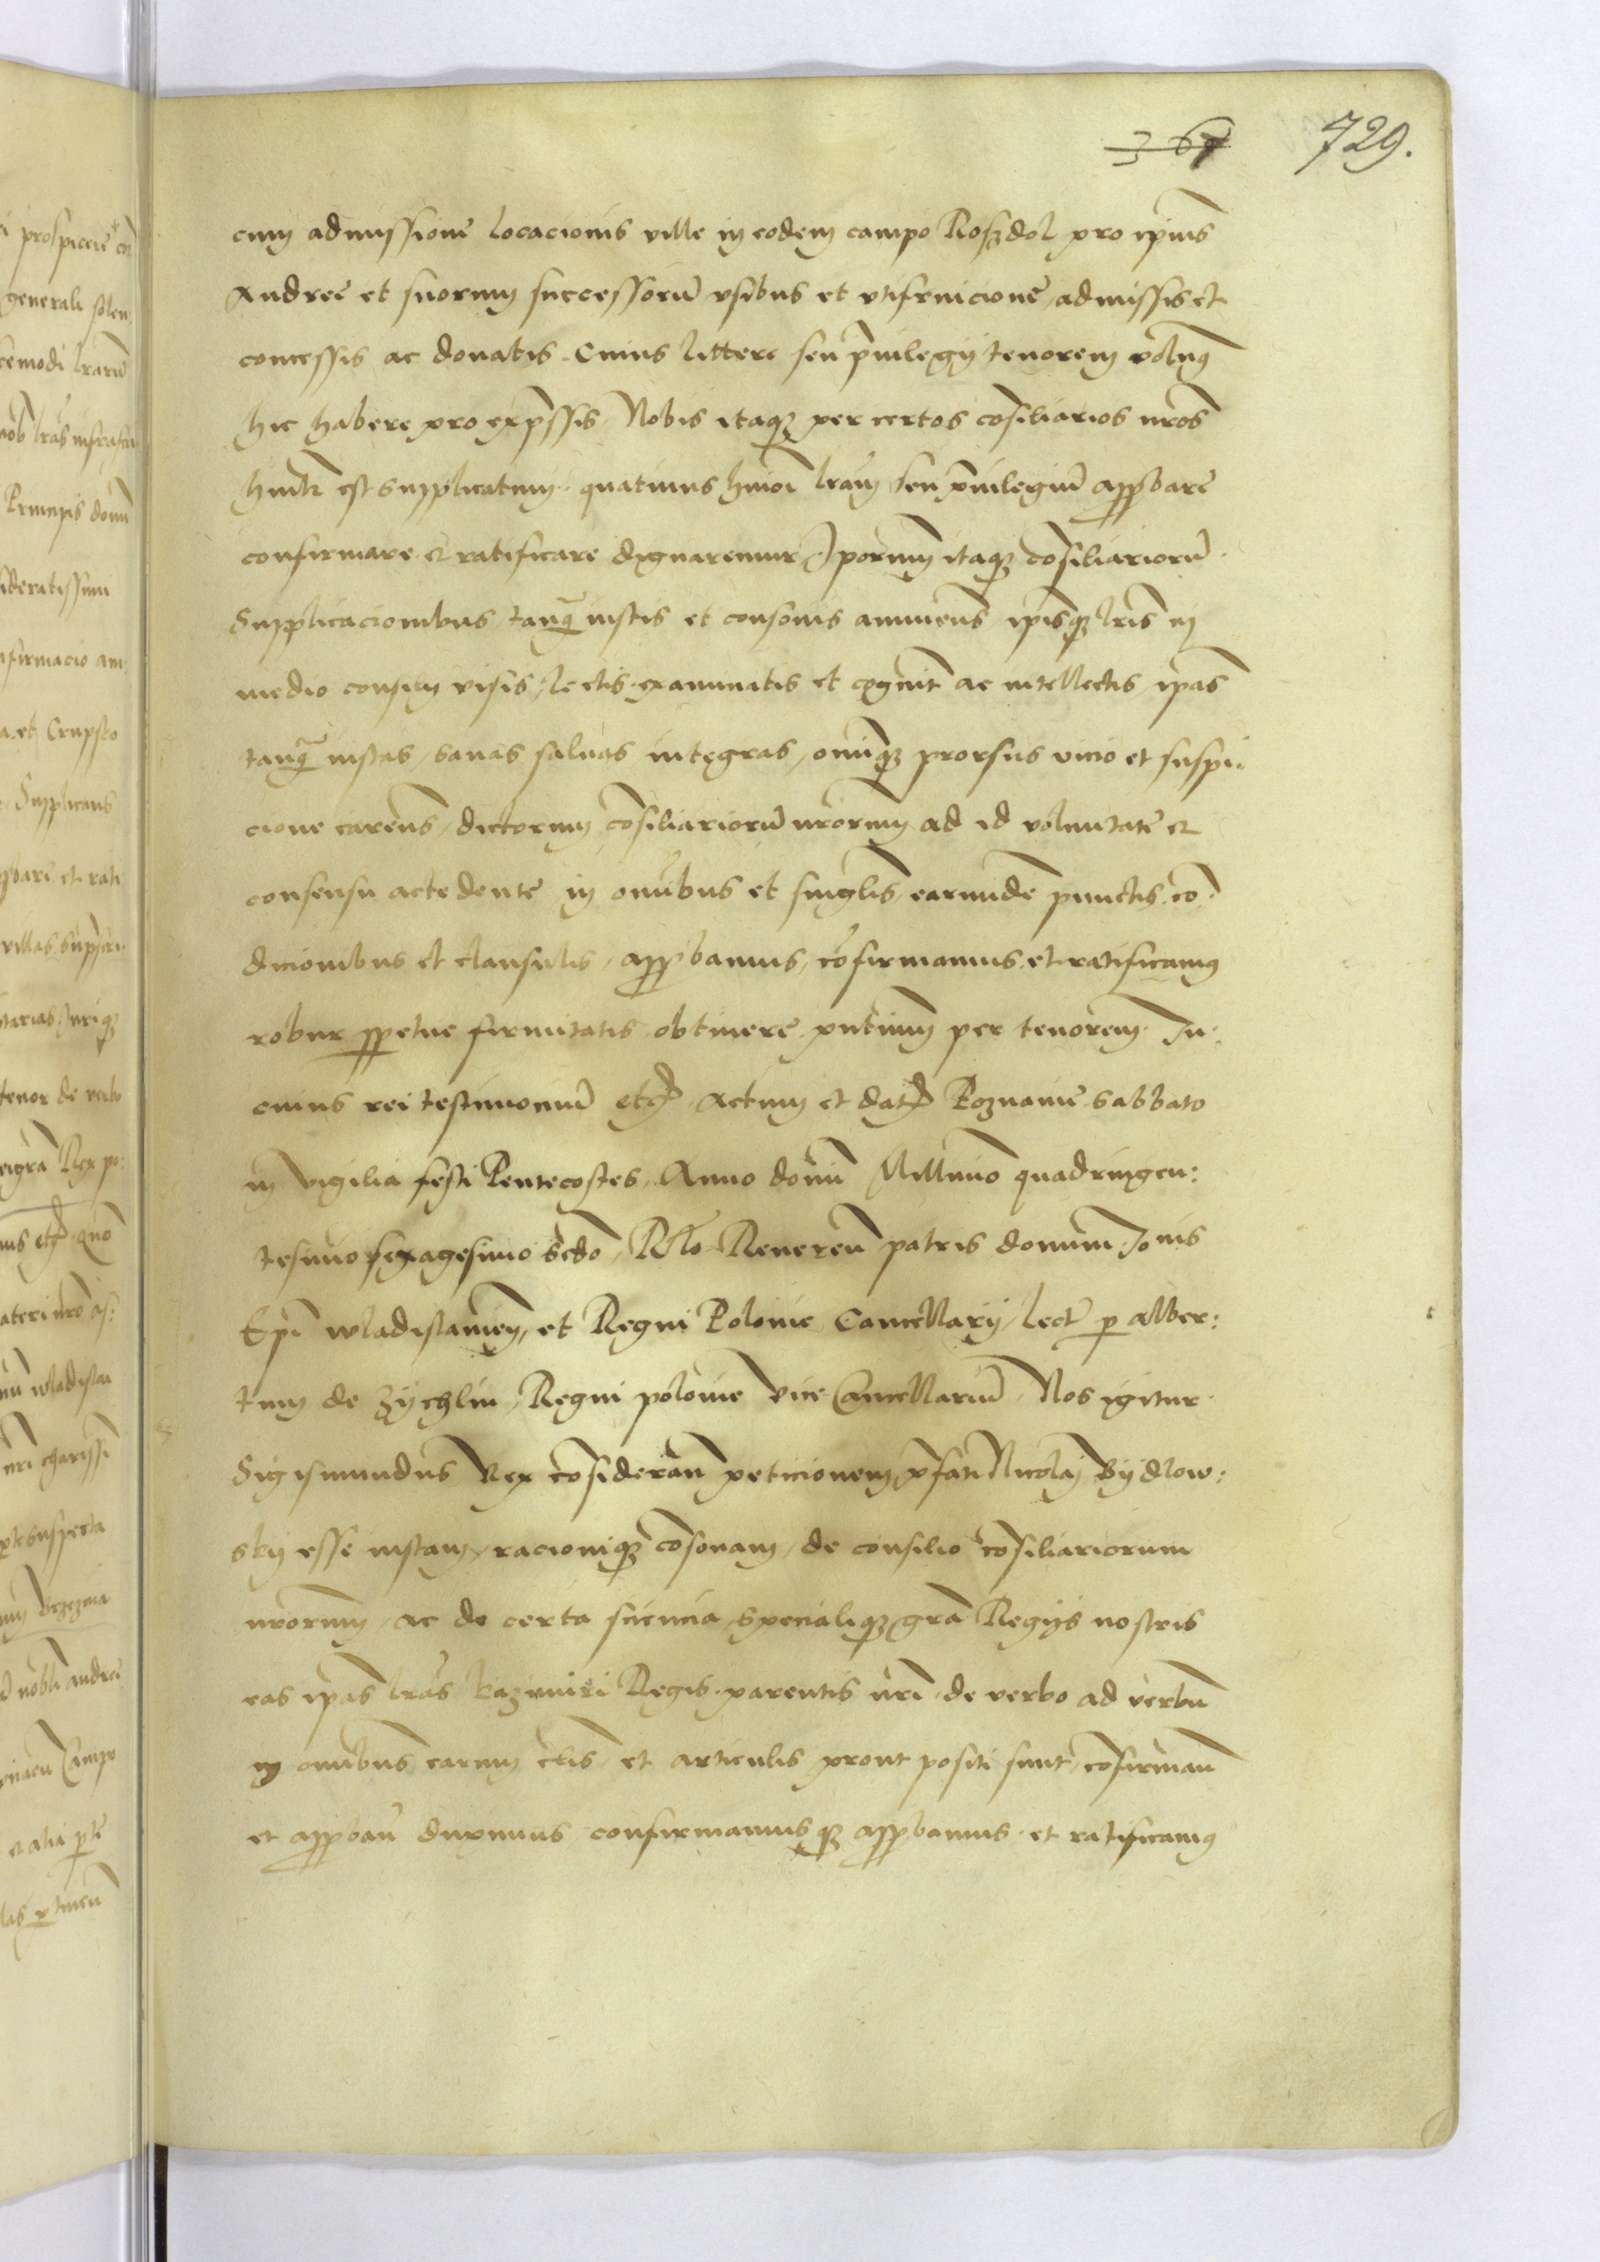 367 729.
cum admissione locacionis ville in eodem campo Roszdol pro ipius
Andree et suorum successorū vsibus et vtifruicione, admissis et
concessis ac donatis. Cuius littere seu p̄uilegij tenorem volum9
hic habere pro exp̄ssis, Nobis itaq3 per certos cōsiliarios nr̄os
est supplicatum. quatinus hmōi lr̄am seu p̄uilegiū approbare
confirmare et ratificare dignaremur, Ipōrum itaq3 cōsiliariorū.
Supplicacionibus tanq̄ iustis et consonis annuens̄ ipisq3 lr̄is in
medio consilij visis, lectis, examinatis et cognit̄ ac intellectis, ipas
tanq̄ iustas, sanas saluas integras, omīq3 prorsus vicio et suspi:
cione carens̄, dictorum cōsiliariorū nr̄orum ad id voluntatē et
consensu accedentē in omībus et singlis earumdē punctis, cō:
dicionibus et clausulis, approbamus, cōfirmamus, et ratificamus
robur ppetue firmitatis obtinere, per tenorem. In:
cuius rei testimoniū etc̄. Actum et dat̄ Poznanie sabbato
in vigilia festi Pentecostes, Anno domī Millimo quadringen:
tesimo sexagesimo scdo, Rlo Reueren̄ patris domini Jo nis
Epī wladislauien, et Regni Polonie Cancellarij, lect̄ p alber:
tum de Zychlin, Regni polonie vice Cancellariū. Nos igitur
Sigismundus Rex cōsideran̄ peticionem p̄fati Nicolaj Bijdlow:
skij esse iustam, racioniq3 cōsonam, de consilio cōsiliariorum
nr̄orum, ac de certa sciencia, specialiq3 gr̄a Regijs nostris
eas ipas lr̄as kazimiri Regis. parentis nr̄i, de verbo ad verbū
in omībus earum et articulis, prout positi sunt, cōfirman̄
et approban̄ duximus, confirmamusq3 approbamus et ratificamus